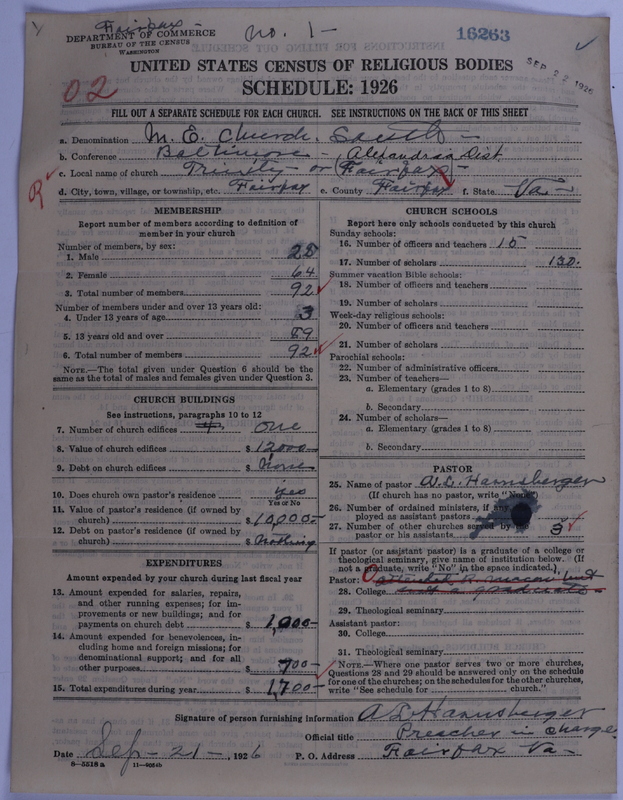 Fairfax -
DEPARTMENT OF COMMERCE
BUREAU OF THE CENSUS
WASHINGTON
No. 1 -
16263
SEP 22 1926
UNITED STATES CENSUS OF RELIGIOUS BODIES
SCHEDULE: 1926
02
FILL OUT A SEPARATE SCHEDULE FOR EACH CHURCH. SEE INSTRUCTIONS ON THE BACK OF THIS SHEET
a. Denomination M. E. Church, South -
b. Conference Baltimore - Alexandria Dist.
c. Local name of church Trinity or Fairfax
d. City, town, village, or township, etc. Fairfax e. County Fairfax f. State Va -
MEMBERSHIP
Report number of members according to definition of member in your church
Number of members, by sex:
1. Male 28
2. Female 64
3. Total number of members 92
Number of members under and over 13 years old:
4. Under 13 years of age 3
5. 13 years old and over 89
6. Total number of members 92
NOTE.—The total given under Question 6 should be
same as the total of males and females given under Question 3.
CHURCH BUILDINGS
See instructions, paragraphs 10 to 12
7. Number of church edifices one
8. Value of church edifices $ 12000
9. Debt on church edifices $ None
10. Does church own pastor's residence yes
Yes or No
11. Value of pastor's residence (if owned by
church) $ 10,000 -
12. Debt on pastor's residence (if owned by
church) $ Nothing
EXPENDITURES
Amount expended by your church during last fiscal year
13. Amount expended for salaries, repairs,
and other running expenses; for im-
provements or new buildings; and for
payments on church debt $ 1,000 -
14. Amount expended for benevolences, in-
cluding home and foreign missions; for
denominational support; and for all
other purposes $ 700 -
15. Total expenditures during year $ 1,700 -
CHURCH SCHOOLS
Report here only schools conducted by this church
Sunday schools:
16. Number of officers and teachers 15
17. Number of scholars 130.
Summer vacation Bible schools:
18. Number of officers and teachers
19. Number of scholars
Week-day religious schools:
20. Number of officers and teachers
21. Number of scholars
Parochial schools:
22. Number of administrative officers
23. Number of teachers—
a. Elementary (grades 1 to 8)
b. Secondary
24. Number of scholars—
a. Elementary (grades 1 to 8)
b. Secondary
PASTOR
25. Name of pastor A. L. Harnsberger
(If church has no pastor, write "None")
26. Number of ordained ministers, if any
ployed as assistant pastors
27. Number of other churches served by the
pastor or his assistants 3
If pastor (or assistant pastor) is a graduate of a college or
theological seminary, give name of institution below. (If
not a graduate, write "No" in the space indicated.)
Pastor: attended R. Macon but
28. College not a graduate -
29. Theological seminary
Assistant pastor:
30. College
31. Theological seminary
NOTE.—Where one pastor serves two or more churches,
Questions 28 and 29 should be answered only on the schedule
for one of the churches; on the schedules for the other churches,
write "See schedule for church."
Signature of person furnishing information A L Harnsberger
Official title Preacher in charge
Date Sep - 21 -, 1926 P. O. Address Fairfax Va -
8-5518 a 11-9064b